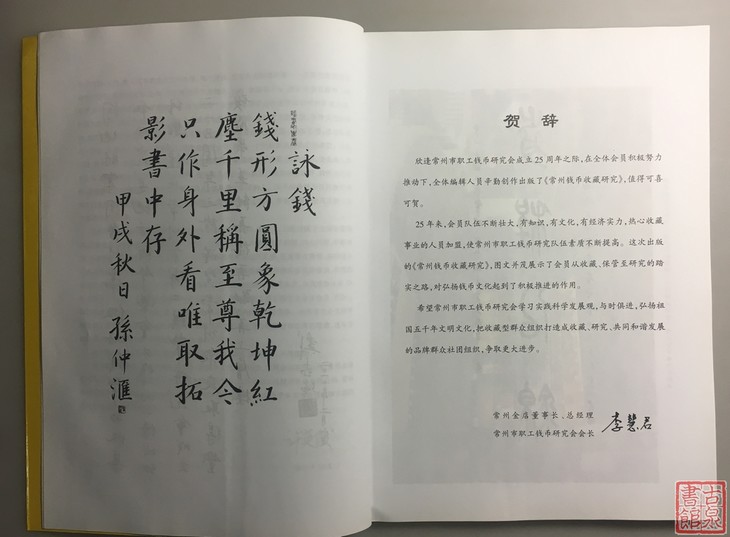 詠錢
錢形方圓象乾坤紅
塵千里稱至尊我今
只作身外看唯取拓
影書中存
甲戌秋日 孫仲滙
贺辞
欣逢常州市职工钱币研究会成立25周年之际,在全体会员积极努力
推动下,全体编辑人员辛勤创作出版了《常州钱币收藏研究》,值得可喜
可贺。
25年来,会员队伍不断壮大,有知识,有文化,有经济实力,热心收藏
事业的人员加盟,使常州市职工钱币研究队伍素质不断提高。这次出版
的《常州钱币收藏研究》,图文并茂展示了会员从收藏、保管至研究的踏
实之路,对弘扬钱币文化起到了积极推进的作用。
希望常州市职工钱币研究会学习实践科学发展观,与时俱进,弘扬祖
国五千年文明文化,把收藏型群众组织打造成收藏、研究、共同和谐发展
的品牌群众社团组织,争取更大进步。
常州金店董事长、总经理
常州市职工钱币研究会会长
李慧君
古泉
書館